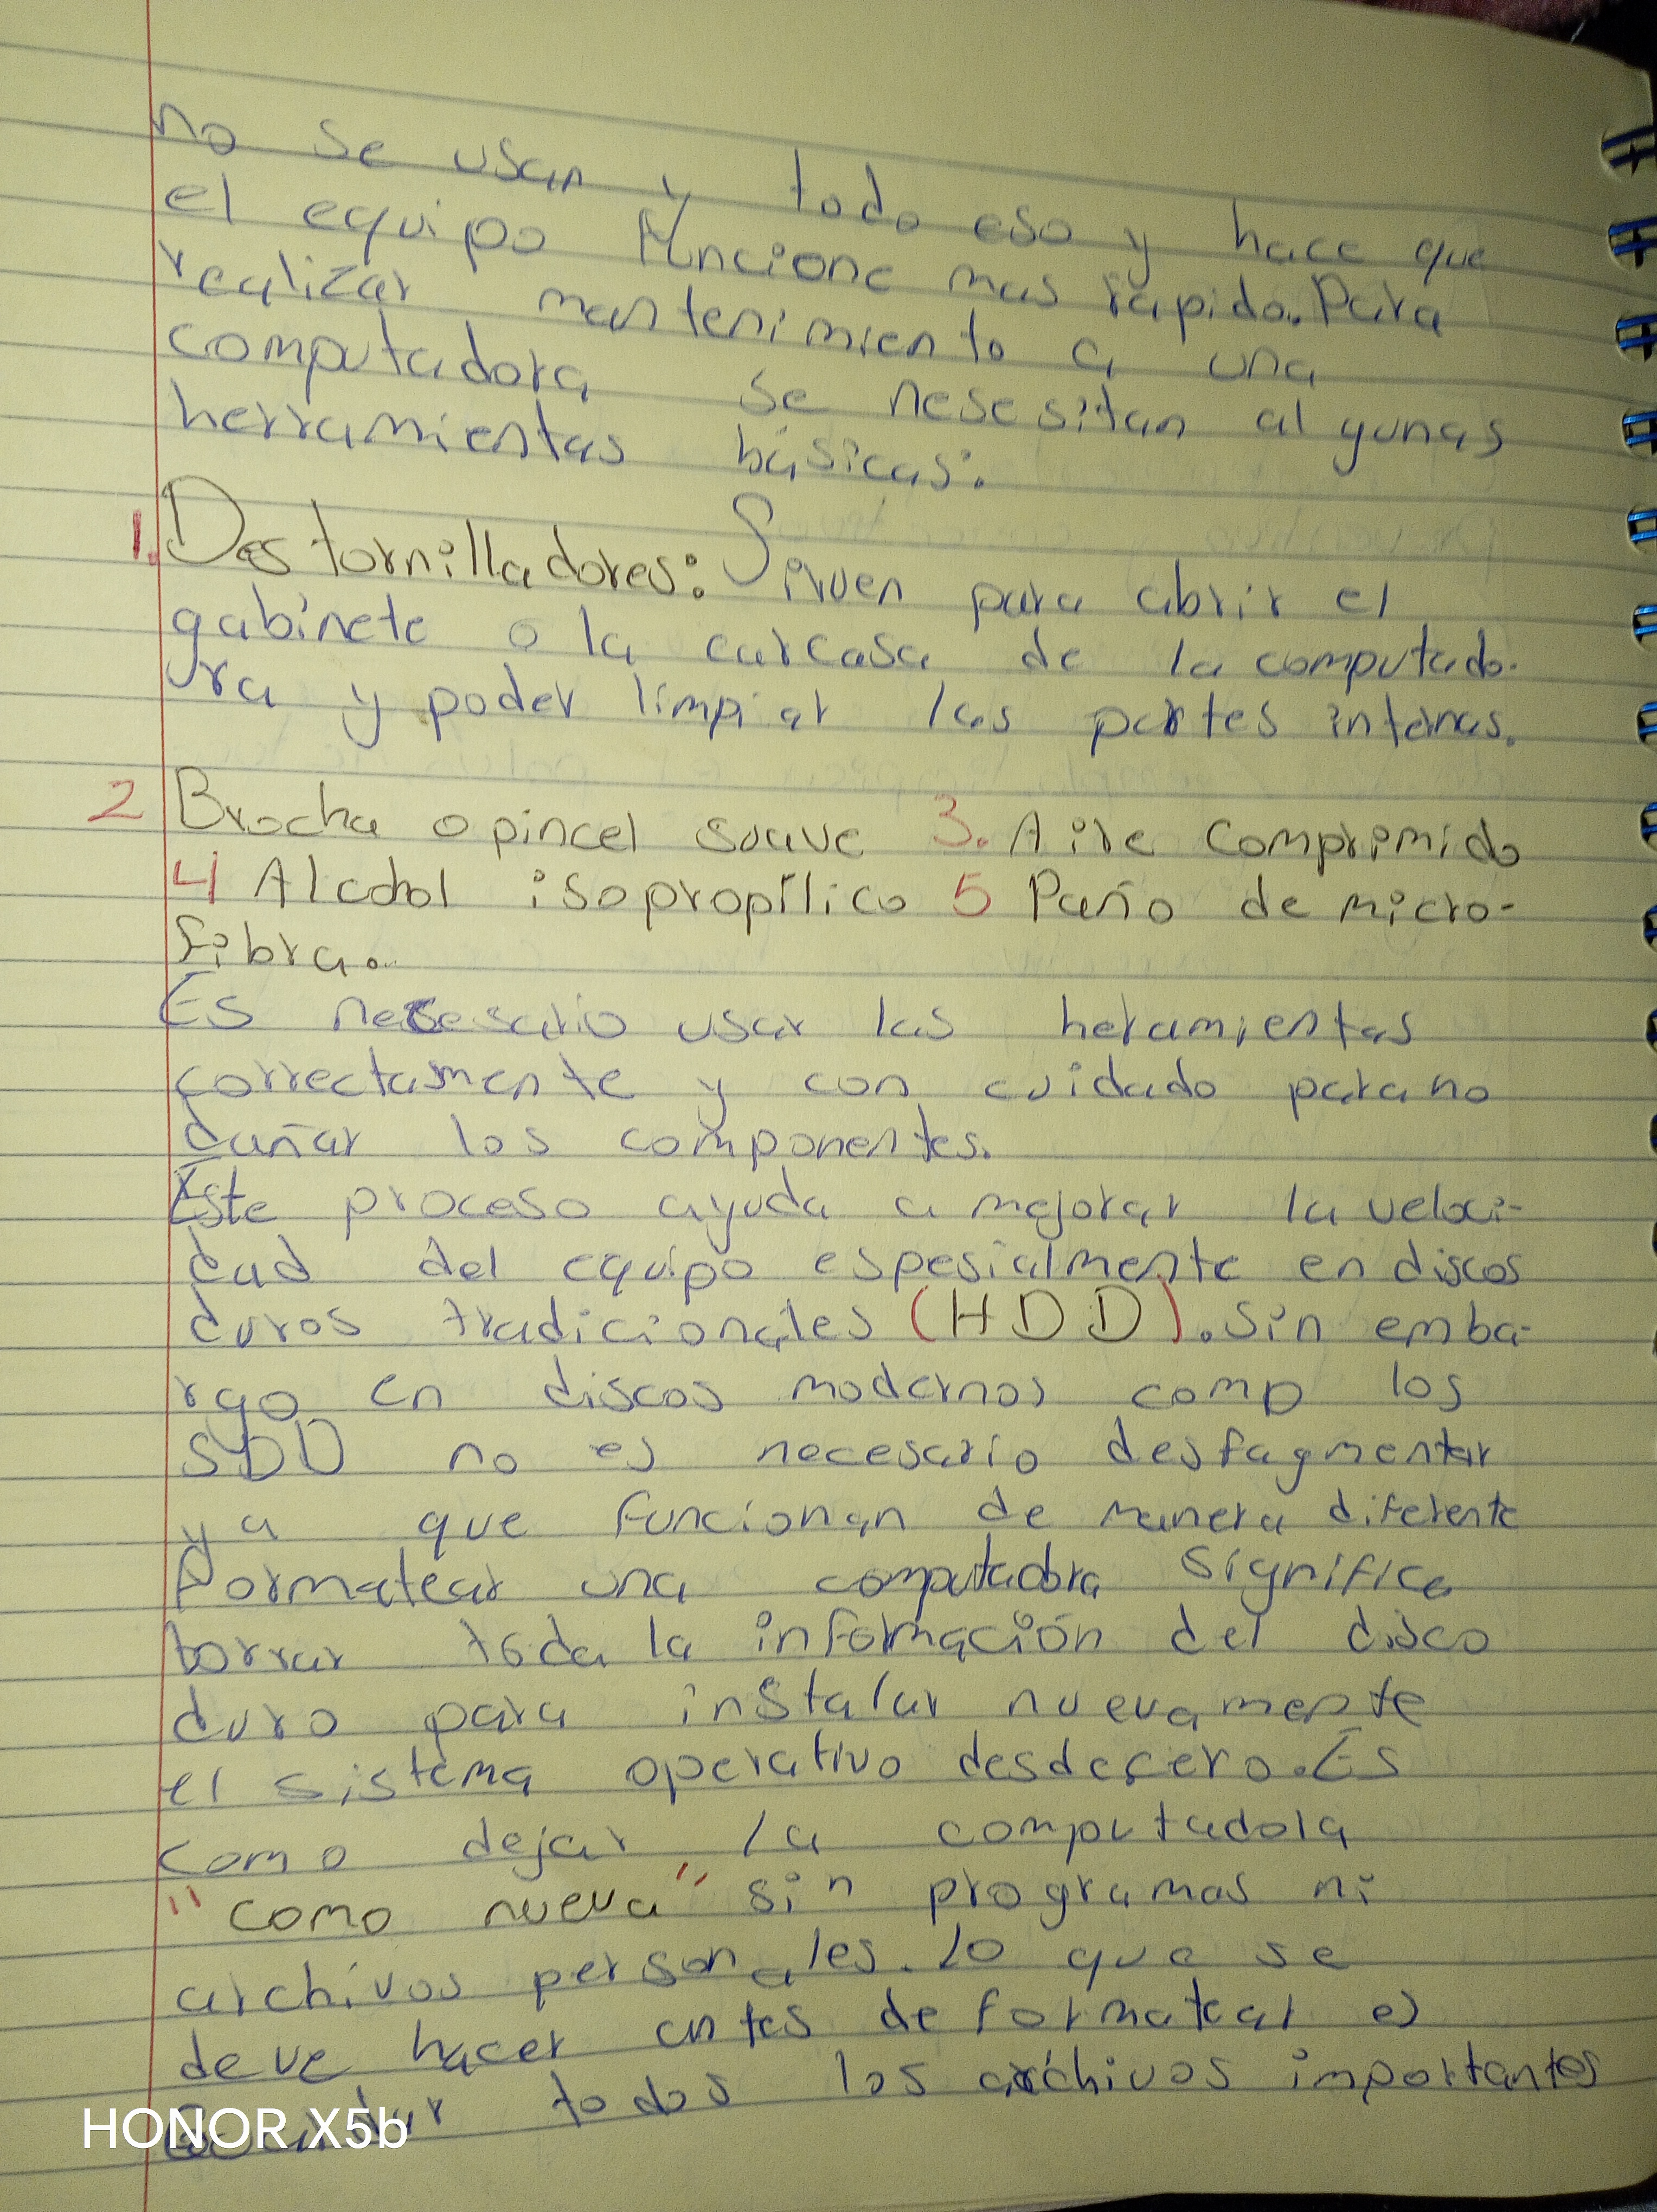 no se usan y todo eso y hace que
el equipo funcione mas rapido. Para
realizar mantenimiento a una
computadora se nesesitan algunas
herramientas básicas:
1. Destornilladores: Sirven para abrir el
gabinete o la carcasa de la computado-
ra y poder limpiar las partes internas.
2 Brocha o pincel suave 3. Aire comprimido
4 Alcohol isopropílico 5 Paño de micro-
fibra.
Es necesario usar las heramientas
correctamente y con cuidado para no
dañar los componentes.
Este proceso ayuda a mejorar la veloci-
dad del equipo espesialmente en discos
duros tradicionales (HDD). Sin emba-
rgo en discos modernos como los
SDD no es necesario desfagmentar
ya que funcionan de manera diferente
Formatear una computadora significa
borrar toda la información del disco
duro para instalar nuevamente
el sistema operativo desde cero. Es
como dejar la computadora
"como nueva" sin programas ni
archivos personales. lo que se
deve hacer antes de formatear es
todos los archivos importantes
HONOR X5b